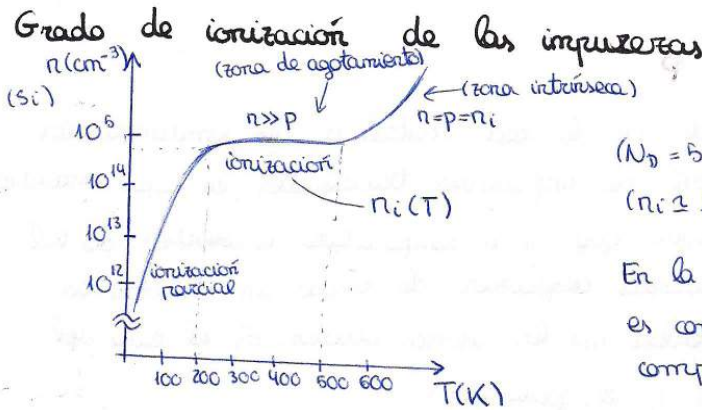 Grado de ionización de las impurezas
n(cm⁻³)
(Si)
(zona de agotamiento)
(zona intrínseca)
n>>p
n=p=nᵢ
ionización
nᵢ(T)
10⁶
10¹⁴
10¹³
10¹²
ionización
parcial
100 200 300 400 600 600
T(K)
(N_D = 5
(nᵢ ≃
En la
es con
comp